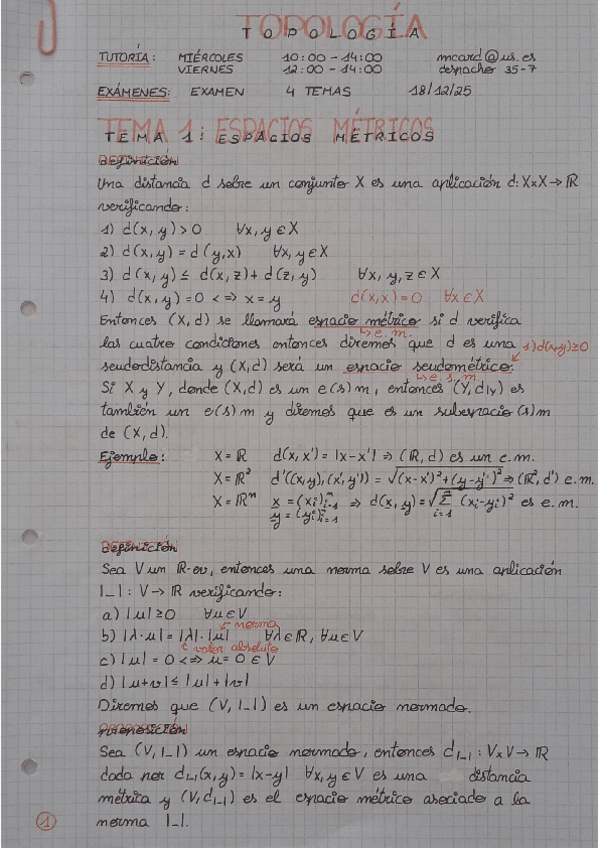 TOPOLOGÍA
TUTORÍA: MIÉRCOLES 10:00 - 14:00 mcard@us.es
VIERNES 12:00 - 14:00 despacho 35-7
EXÁMENES: EXAMEN 4 TEMAS 18/12/25
TEMA 1: ESPACIOS MÉTRICOS
Definición
Una distancia d sobre un conjunto X es una aplicación d: X×X → ℝ
verificando:
1) d(x, y) > 0 ∀x, y ∈ X
2) d(x, y) = d(y,x) ∀x, y ∈ X
3) d(x, y) ≤ d(x, z) + d(z, y) ∀x, y, z ∈ X
4) d(x, y) = 0 <=> x = y d(x,x) = 0 ∀x ∈ X
Entonces (X, d) se llamará espacio métrico si d verifica
↳ e. m.
las cuatro condiciones entonces diremos que d es una 1) d(x,y) ≥ 0
seudodistancia y (X,d) será un espacio seudométrico.
↳ e. s. m.
Si X y Y, donde (X,d) es un e(s)m, entonces (Y, d|Y) es
también un e(s)m y diremos que es un subespacio (s)m
de (X, d).
Ejemplo: X = ℝ d(x, x') = |x - x'| ⇒ (ℝ, d) es un e.m.
X = ℝ² d'((x, y), (x', y')) = √(x - x')² + (y - y')² ⇒ (ℝ², d') e.m.
X = ℝⁿ x = (xi)ⁿi=1 ⇒ d(x, y) = √Σⁿi=1 (xi - yi)² es e.m.
y = (yi)ⁿi=1
Definición
Sea V un ℝ-ev, entonces una norma sobre V es una aplicación
|_| : V → ℝ verificando:
a) |u| ≥ 0 ∀u ∈ V
← norma
b) |λ·u| = |λ|·|u| ∀λ ∈ ℝ, ∀u ∈ V
↳ valor absoluto
c) |u| = 0 <=> u = 0 ∈ V
d) |u + v| ≤ |u| + |v|
Diremos que (V, |_|) es un espacio normado.
Proposición
Sea (V, |_|) un espacio normado, entonces d|_| : V×V → ℝ
dada por d|_|(x, y) = |x - y| ∀x, y ∈ V es una distancia
métrica y (V, d|_|) es el espacio métrico asociado a la
norma |_|.
1